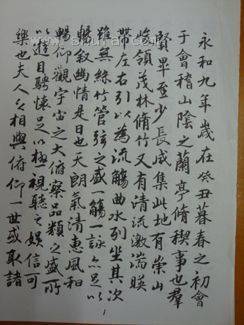 永和九年歲在癸丑暮春之初會
于會稽山陰之蘭亭脩稧事也群
賢畢至少長咸集此地有崇山
峻領茂林脩竹又有清流激湍暎
帶左右引以為流觴曲水列坐其次
雖無絲竹管弦之盛一觴一詠亦足以
暢敘幽情是日也天朗氣清惠風和
暢仰觀宇宙之大俯察品類之盛所
以遊目騁懷足以極視聽之娛信可
樂也夫人之相與俯仰一世或取諸